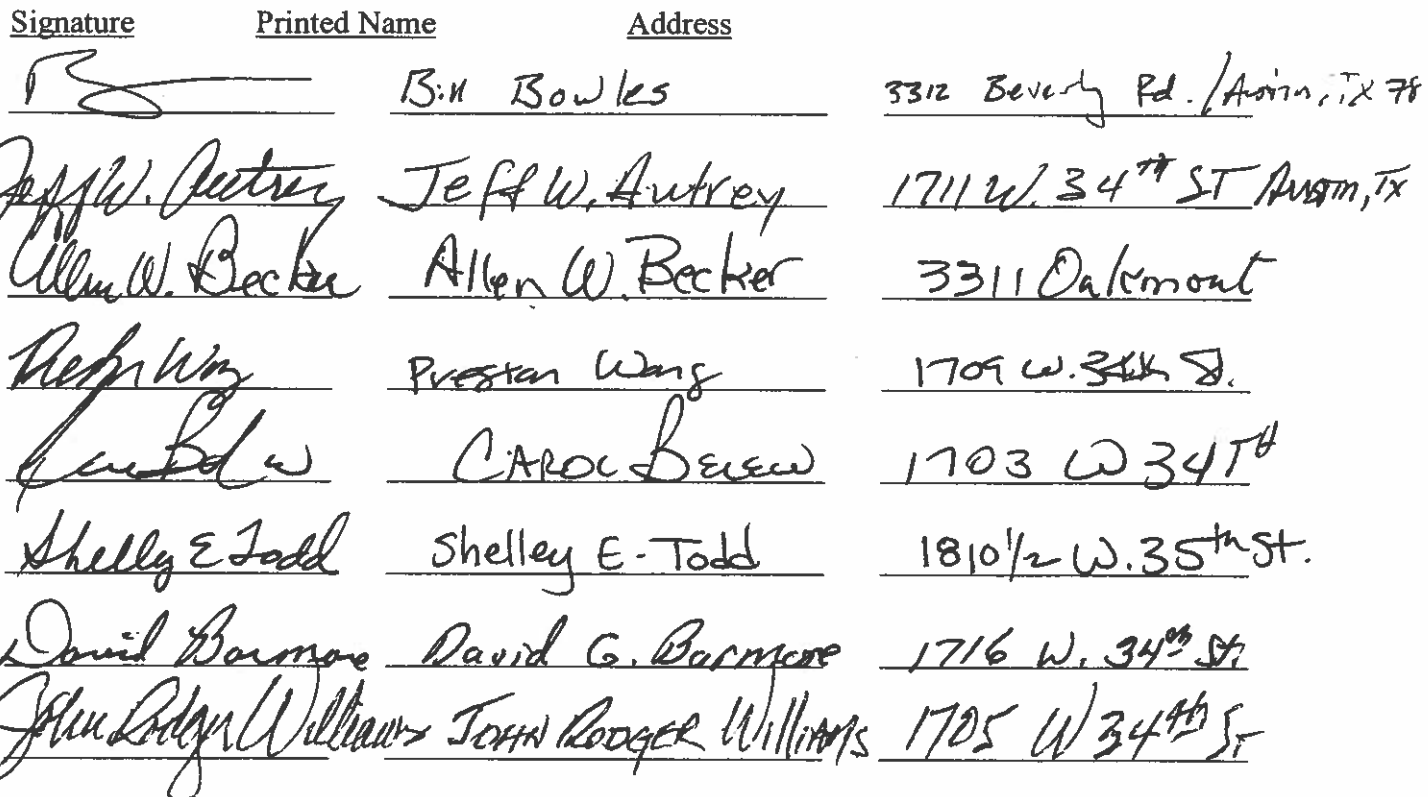 Signature Printed Name Address
Bill Bowles 3312 Beverly Rd. / Austin, TX 78
Jeff W. Autrey Jeff W. Autrey 1711 W. 34TH ST Austin, TX
Allen W. Becker Allen W. Becker 3311 Oakmont
Preston Wang 1709 W. 34th St.
CAROL BELEW 1703 W 34TH
Shelley E Todd Shelley E. Todd 1810 1/2 W. 35th St.
David Barmore David G. Barmore 1716 W. 34th St.
John Rodger Williams JOHN RODGER Williams 1705 W 34th ST